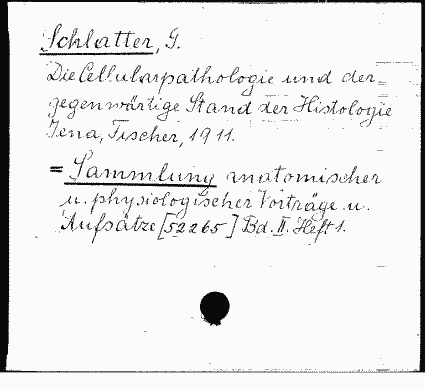 Schlatter, G.
Die Cellularpathologie und der
gegenwärtige Stand der Histologie
Jena, Fischer, 1911.
= Sammlung anatomischer
u. physiologischer Vorträge u.
Aufsätze [52265] Bd. II. Heft 1.